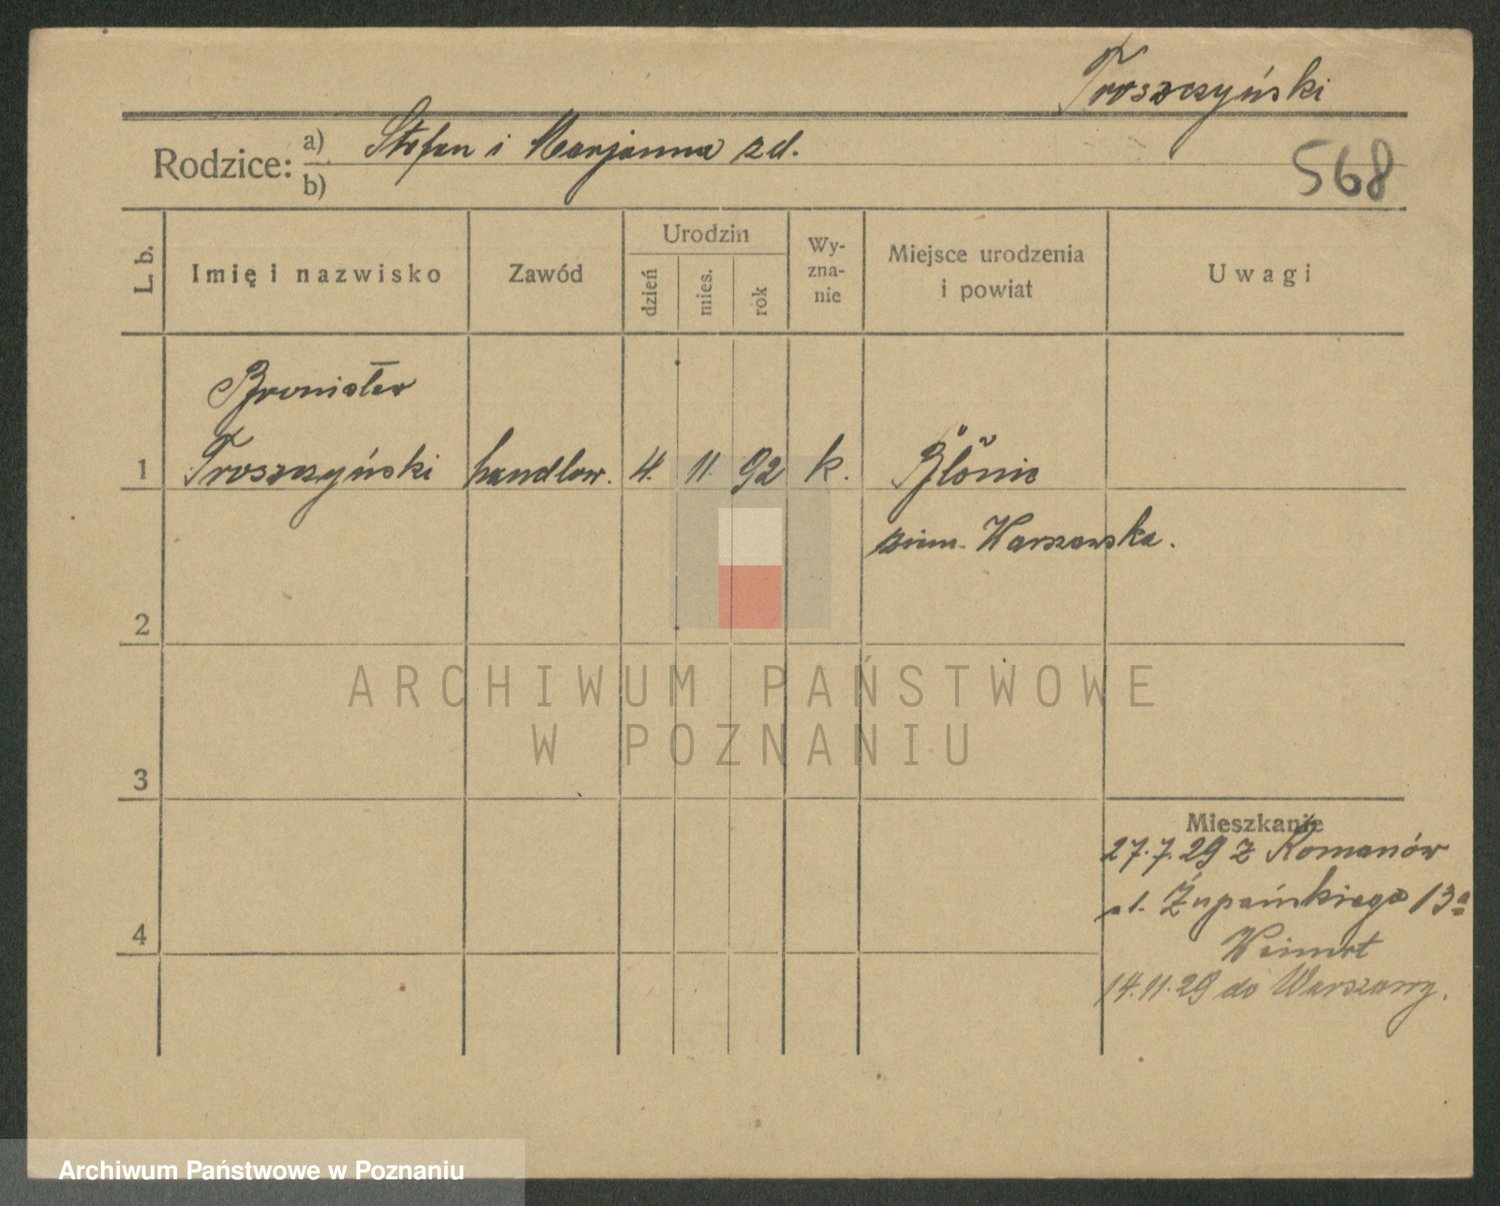 Troszczyński
Rodzice: a) Stefan i Marjanna zd.
b)
568
L. b.
Imię i nazwisko
Zawód
Urodzin
dzień
mies.
rok
Wy-
zna-
nie
Miejsce urodzenia
i powiat
Uwagi
Bronisław
1 Troszczyński handlow. 4. 11. 92 k. Błonie
Warszawska.
2
ARCHIWUM PAŃSTWOWE
W POZNANIU
3
Mieszkanie
27.7.29 z Komanów
ul. Żupańskiego 13a
4
14.11.29 do Warszawy.
Archiwum Państwowe w Poznaniu